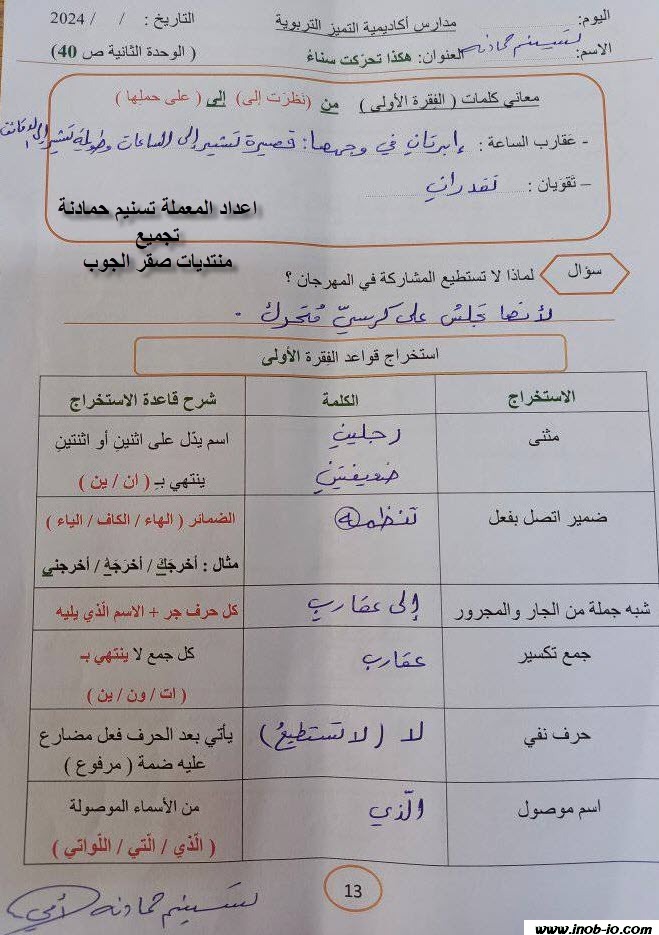 اليوم: مدارس أكاديمية التميز التربوية التاريخ: / / 2024
الاسم: تسنيم حمادنه العنوان: هكذا تحركت سناء ( الوحدة الثانية ص 40)
معاني كلمات ( الفقرة الأولى ) من (نظرت إلى) إلى ( على حملها )
- عقارب الساعة : إبرتان في وجهها: قصيرة تشير إلى الساعات وطويلة تشير إلى الدقائق
- تقويان : تقدران
اعداد المعملة تسنيم حمادنة
تجميع
منتديات صقر الجوب
سؤال لماذا لا تستطيع المشاركة في المهرجان ؟
لأنها تجلس على كرسيّ متحرك .
استخراج قواعد الفقرة الأولى
الاستخراج الكلمة شرح قاعدة الاستخراج
مثنى رجلين اسم يدّل على اثنين أو اثنتين
ضعيفتين ينتهي بـ ( ان / ين )
ضمير اتصل بفعل تنظمه الضمائر ( الهاء / الكاف / الياء )
مثال : أخرجَكَ / أخرجَهُ / أخرجني
شبه جملة من الجار والمجرور إلى عقارب كل حرف جر + الاسم الّذي يليه
جمع تكسير عقارب كل جمع لا ينتهي بـ
( ات / ون / ين )
حرف نفي لا ( لا تستطيعُ ) يأتي بعد الحرف فعل مضارع
عليه ضمة ( مرفوع )
اسم موصول الّذي من الأسماء الموصولة
( الّذي / الّتي / اللّواتي )
13
تسنيم حمادنه لأمي
www.inob-io.com